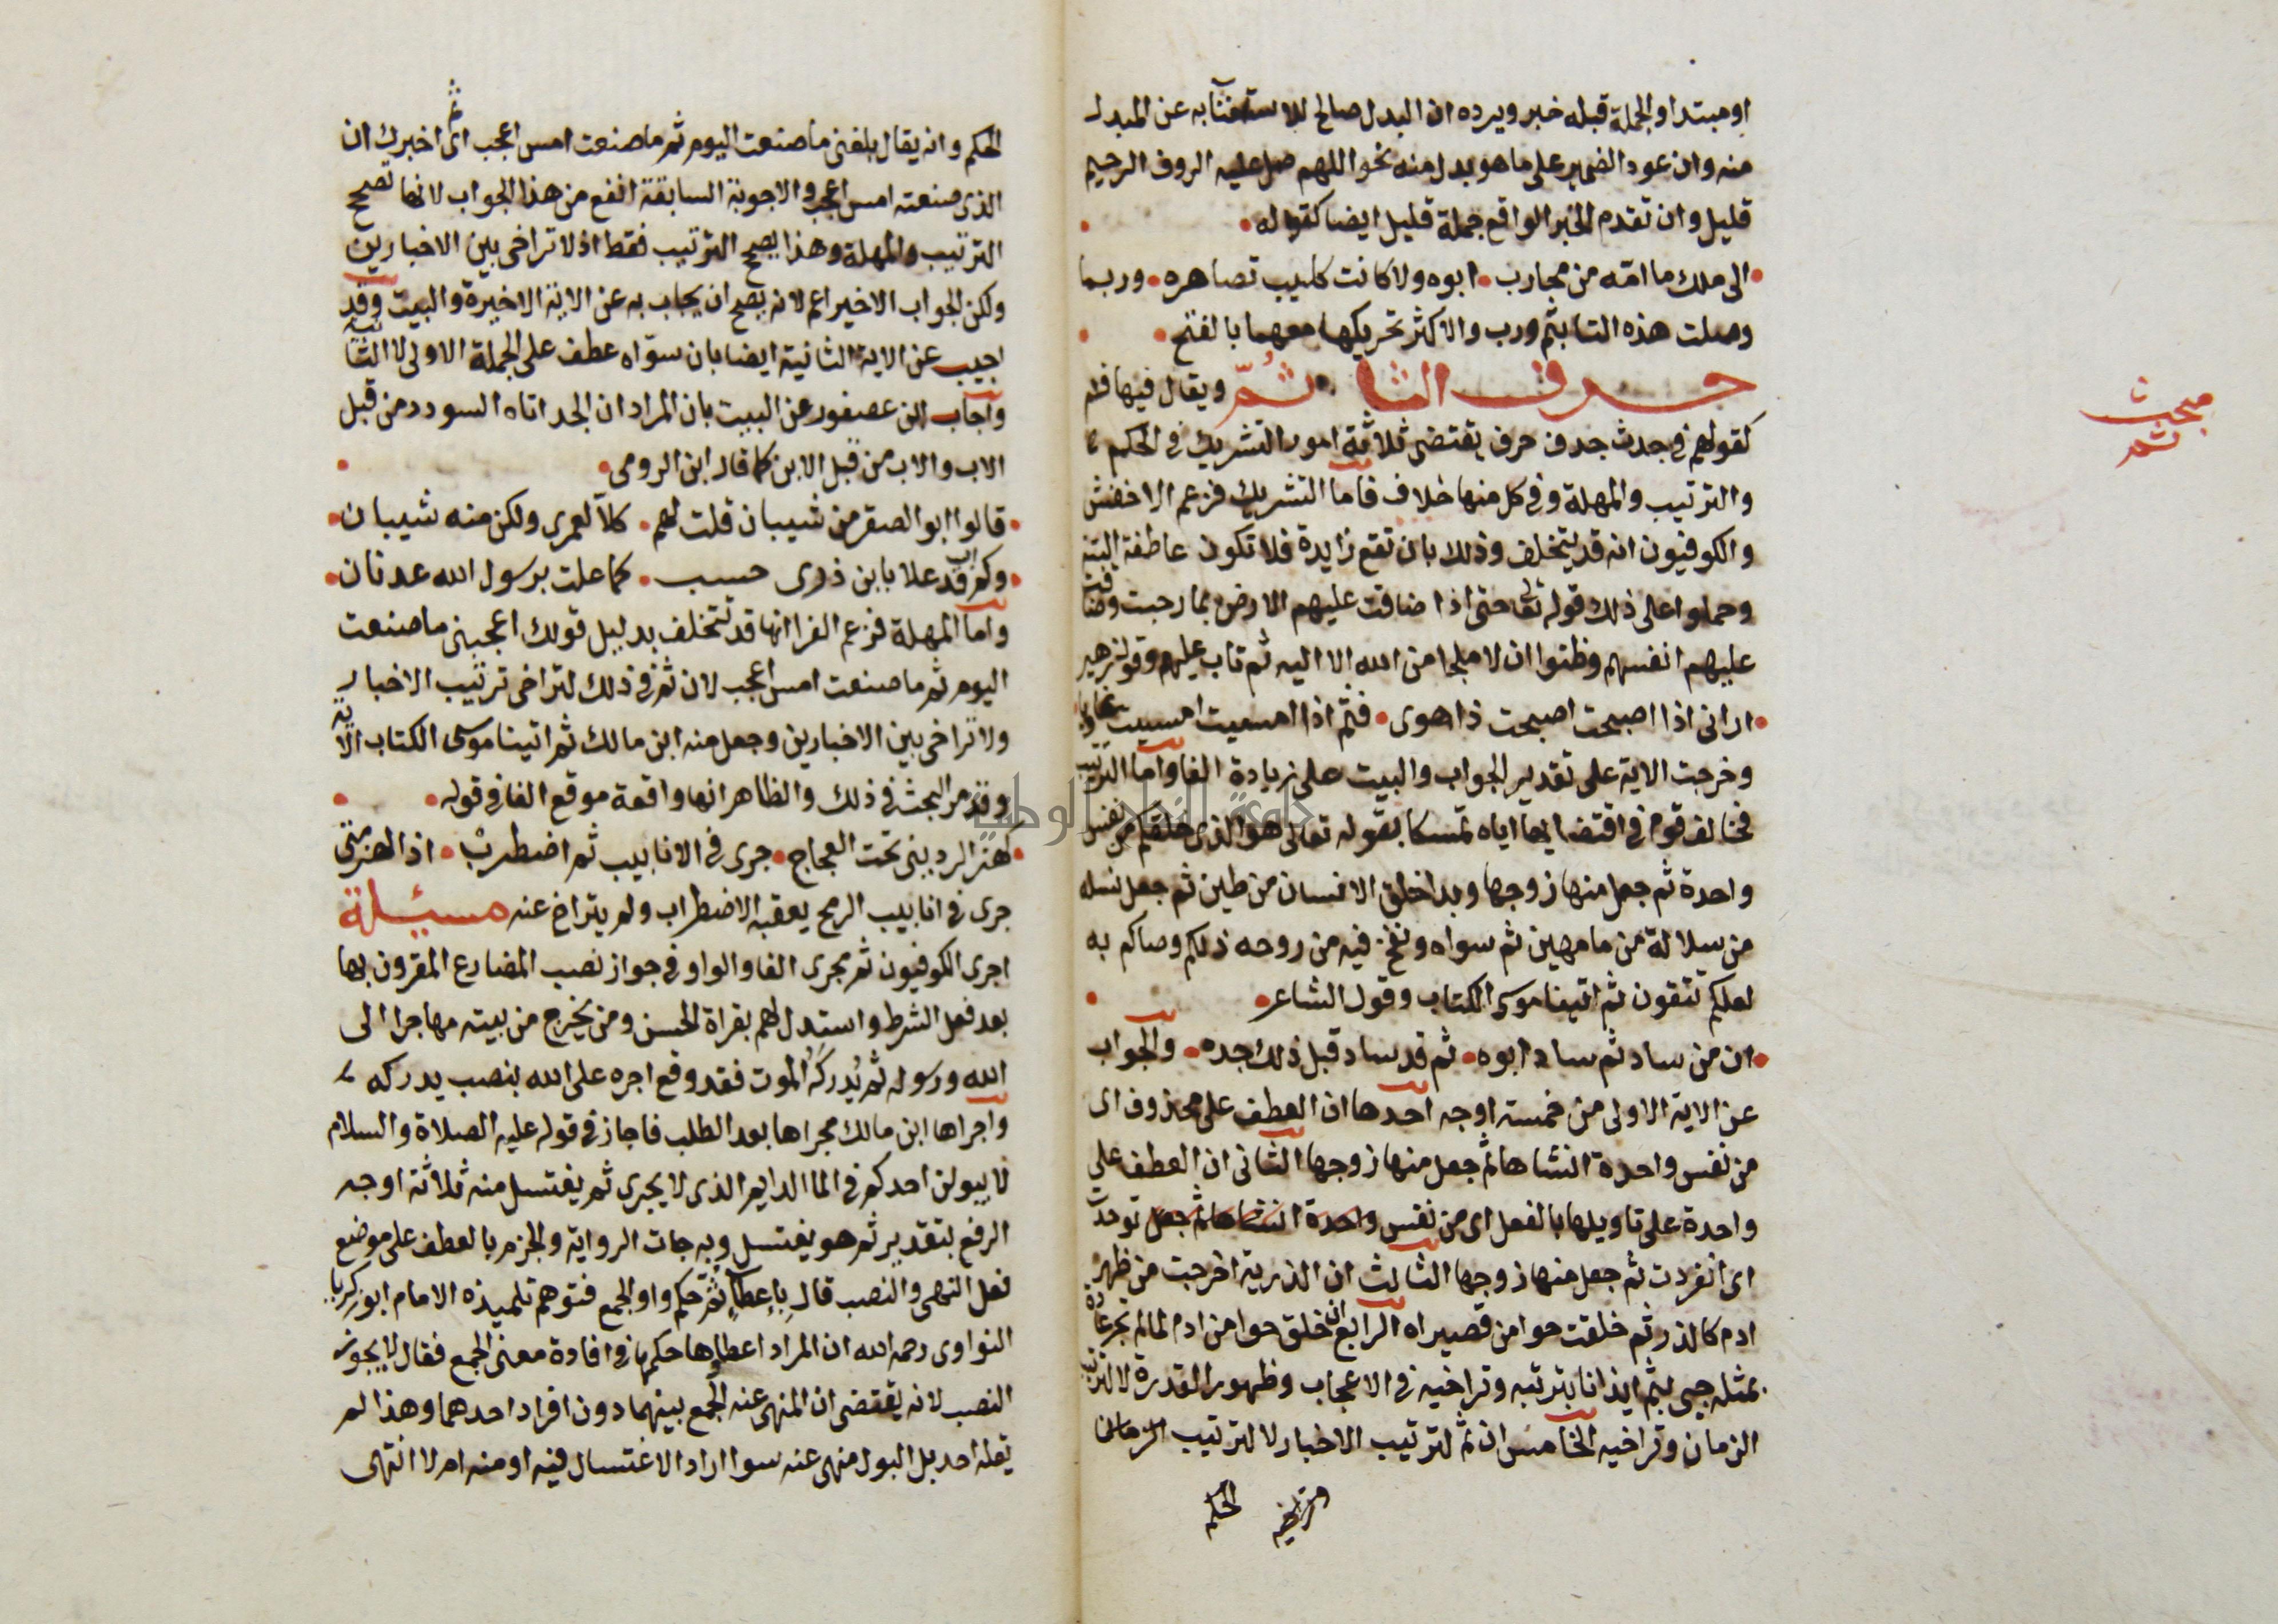 او مبتدا والجملة قبله خبر ويرده ان البدل صالح للاستغنا به عن المبدل
منه وان عود الضمير على ما هو بدل منه نحو اللهم صل عليه الروف الرحيم
قليل وان تقدم الخبر الواقع جملة قليل ايضا كقوله
الى ملك ما امه من محارب ابوه ولا كانت كليب تصاهره وربما
وصلت هذه التا بثم ورب والاكثر تحريكها معهما بالفتح
حرف الثا ثُمّ ويقال فيها فم
مبحث ثم
كقولهم في جدث جدف حرف يقتضي ثلاثة امور التشريك في الحكم
والترتيب والمهلة وفي كل منها خلاف فاما التشريك فزعم الاخفش
والكوفيون انه قد يتخلف وذلك بان تقع زايدة فلا تكون عاطفة البتة
وحملوا على ذلك قوله تعالى حتى اذا ضاقت عليهم الارض بما رحبت وضاقت
عليهم انفسهم وظنوا ان لا ملجا من الله الا اليه ثم تاب عليهم وقول زهير
اراني اذا اصبحت اصبحت ذا هوى فثم اذا امسيت امسيت غاديا
وخرجت الاية على تقدير الجواب والبيت على زيادة الفا واما الترتيب
فخالف قوم في اقتضايها اياه تمسكا بقوله تعالى هو الذي خلقكم من نفس
واحدة ثم جعل منها زوجها وبدا خلق الانسان من طين ثم جعل نسله
من سلالة من ما مهين ثم سواه ونفخ فيه من روحه ذلكم وصاكم به
لعلكم تتقون ثم اتينا موسى الكتاب وقول الشاعر
ان من ساد ثم ساد ابوه ثم قد ساد قبل ذلك جده والجواب
عن الاية الاولى من خمسة اوجه احدها ان العطف على محذوف اى
من نفس واحدة انشاها ثم جعل منها زوجها الثاني ان العطف على
واحدة على تاويلها بالفعل اى من نفس واحدة انشاها ثم جعل توحدت
اى انفردت ثم جعل منها زوجها الثالث ان الذرية اخرجت من ظهر
ادم كالذر ثم خلقت حوا من قصيراه الرابع ان خلق حوا من ادم لما لم تجر عادة
بمثله جيى بثم ايذانا بترتبه وتراخيه في الاعجاب وظهور القدرة لا لترتيب
الزمان وتراخيه الخامس ان ثم لترتيب الاخبار لا لترتيب الزمان
الحكم
الحكم وانه يقال بلغني ما صنعت اليوم ثم ما صنعت امس اعجب اى ثم اخبرك ان
الذي صنعته امس اعجب والاجوبة السابقة انفع من هذا الجواب لانها تصحح
الترتيب والمهلة وهذا يصحح الترتيب فقط اذ لا تراخى بين الاخبارين
ولكن الجواب الاخير اعم لانه يصح ان يجاب به عن الاية الاخيرة والبيت وقد
اجيب عن الاية الثانية ايضا بان سواه عطف على الجملة الاولى لا الثانية
واجاب ابن عصفور عن البيت بان المراد ان الجد اتاه السودد من قبل
الاب والاب من قبل الابن كما قال ابن الرومى
قالوا ابو الصقر من شيبان قلت لهم كلا لعمرى ولكن منه شيبان
وكم اب قد علا بابن ذرى حسب كما علت برسول الله عدنان
واما المهلة فزعم الفرا انها قد تتخلف بدليل قولك اعجبنى ما صنعت
اليوم ثم ما صنعت امس اعجب لان ثم في ذلك لتراخى ترتيب الاخبار
ولا تراخى بين الاخبارين وجعل منه ابن مالك ثم اتينا موسى الكتاب الاية
وقد مر البحث في ذلك والظاهر انها واقعة موقع الفا في قوله
كهز الردينى تحت العجاج جرى في الانابيب ثم اضطرب اذ الهز متى
جرى في انابيب الرمح يعقبه الاضطراب ولم يتراخ عنه مسئلة
اجرى الكوفيون ثم مجرى الفا والواو في جواز نصب المضارع المقرون بها
بعد فعل الشرط واستدل لهم بقراة الحسن ومن يخرج من بيته مهاجرا الى
الله ورسوله ثم يُدركَه الموت فقد وقع اجره على الله بنصب يدركه
واجراها ابن مالك مجراها بعد الطلب فاجاز في قوله عليه الصلاة والسلام
لا يبولن احدكم في الما الدايم الذى لا يجرى ثم يغتسل منه ثلاثة اوجه
الرفع بتقدير ثم هو يغتسل وبه جات الرواية والجزم بالعطف على موضع
فعل النهى والنصب قال باعطا ثم حكم واو الجمع فتوهم تلميذه الامام ابو زكريا
النواوى رحمه الله ان المراد اعطاوها حكمها في افادة معنى الجمع فقال لا يجوز
النصب لانه يقتضى ان المنهى عنه الجمع بينهما دون افراد احدهما وهذا لم
يقله احد بل البول منهى عنه سوا اراد الاغتسال فيه او منه ام لا انتهى
جامعة النجاح الوطنية